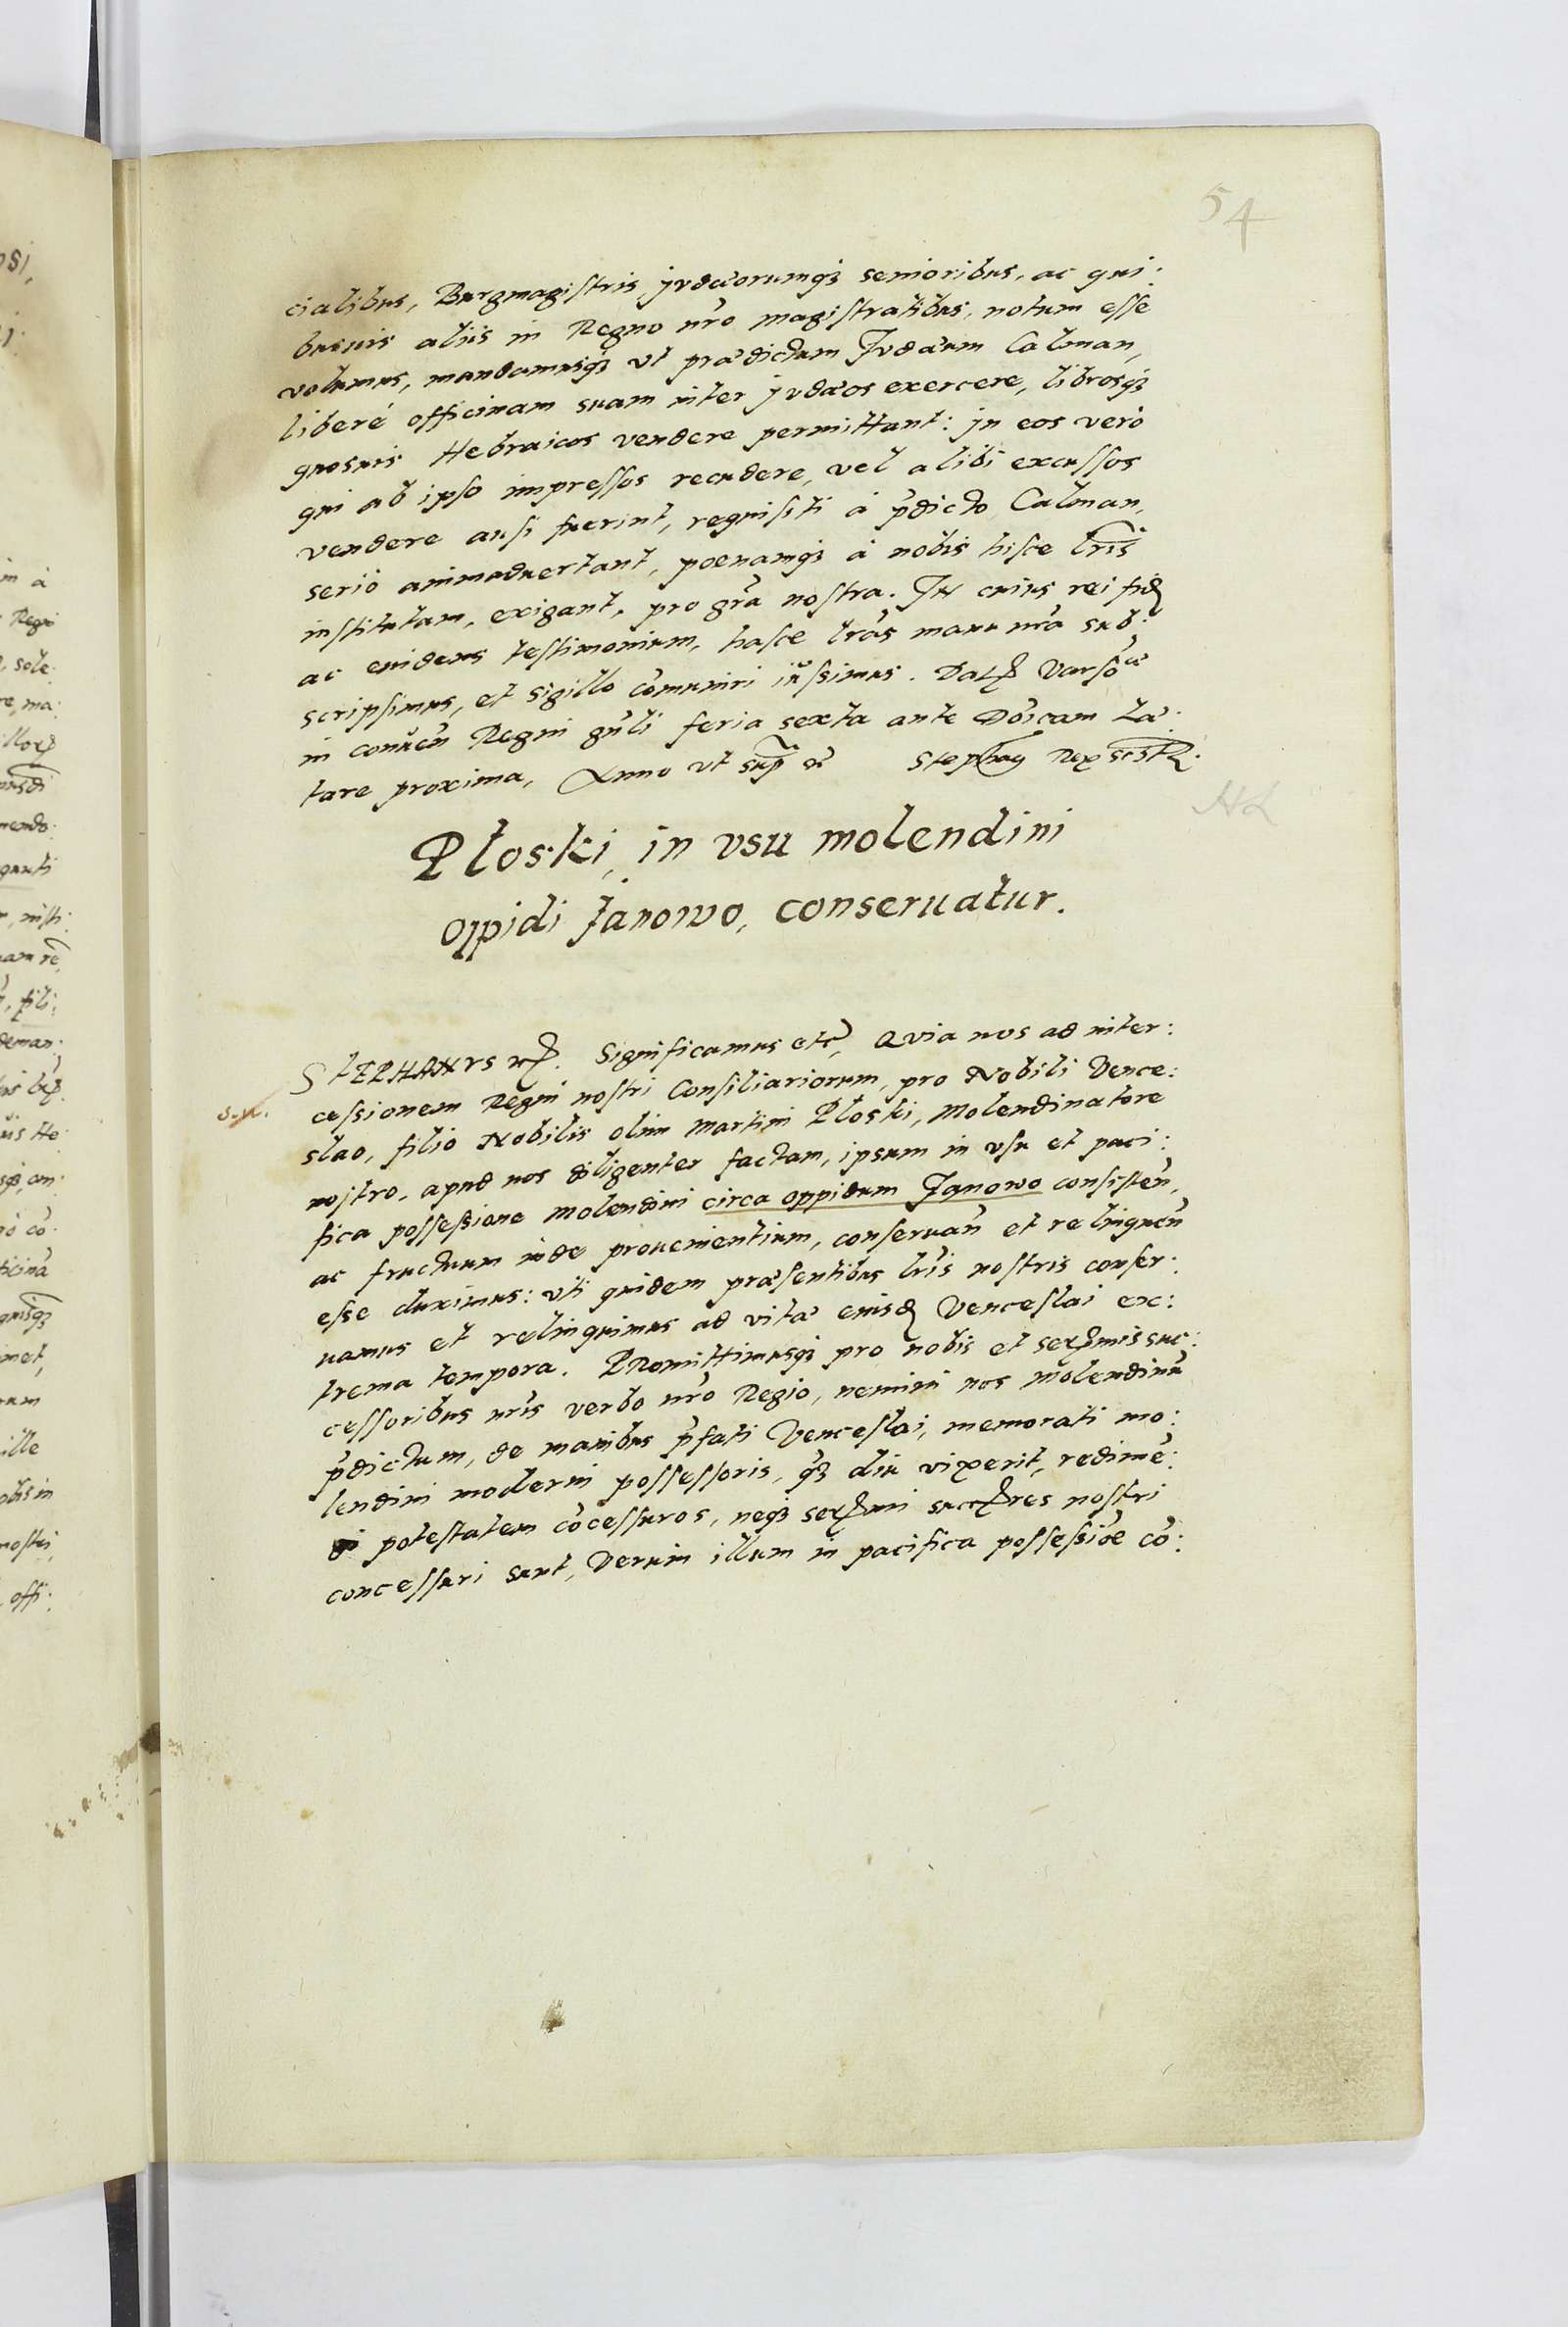 54
cialibus, Burgmagistris, judæorumq₃ senioribus, ac qui:
busuis aliis in Regno nr̃o magistratibus, notum esse
volumus, mandamusq₃ vt prædictum Judæum Calman,
liberé officinam suam inter judæos exercere, librosq₃
quosuis Hebraicos vendere permittant: in eos veró
qui ab ipso impressos recudere, vel alibi excussos
vendere ausi fuerint, requisiti á p̃dicto Calman,
serió animaduertant, poenamq₃ á nobis hisce lr̃is
institutam, exigant, pro gr̃a nostra. IN cuius rei fidẽ
ac euidens testimonium, hasce lr̃as manu nr̃a sub:
scripsimus, et sigillo cõmuniri iussimus. Datꝭ Varsõæ
in conuen̄ Regni gn̄li feria sexta ante Dõicam Læ:
tare proxima, Anno vt sup̃ Stephaꝰ Rex scst.
Płoski, in vsu molendini
oppidi Janowo, conseruatur.
STEPHANVS rꝭ. Significamus etc̃, Quia nos ad inter:
cessionem Regni nostri Consiliariorum, pro Nobili Vence:
slao, filio Nobilis olim Martini Płoski, Molendinatore
nostro, apud nos diligenter factam, ipsum in vsu et paci:
fica possessione molendini circa oppidum Janowo consisten̄,
ac fructuum inde prouenientium, conseruan̄ et relinquen̄
esse duximus: vti quidem præsentibus lr̃is nostris conser:
uamus et relinquimus ad vitæ eiusdẽ Venceslai ex:
trema tempora. PRomittimusq₃ pro nobis et serꝭmis suc:
cessoribus nr̃is verbo nr̃o Regio, nemini nos molendinū
p̃dictum, de manibus p̃fati Venceslai, memorati mo:
lendini moderni possessoris, q̃₃ diu vixerit, redimẽ:
di potestatem cõcessuros, neq₃ serꝭmi succꝭres nostri
concessuri sunt, Verum illum in pacifica possessiõe cõ: